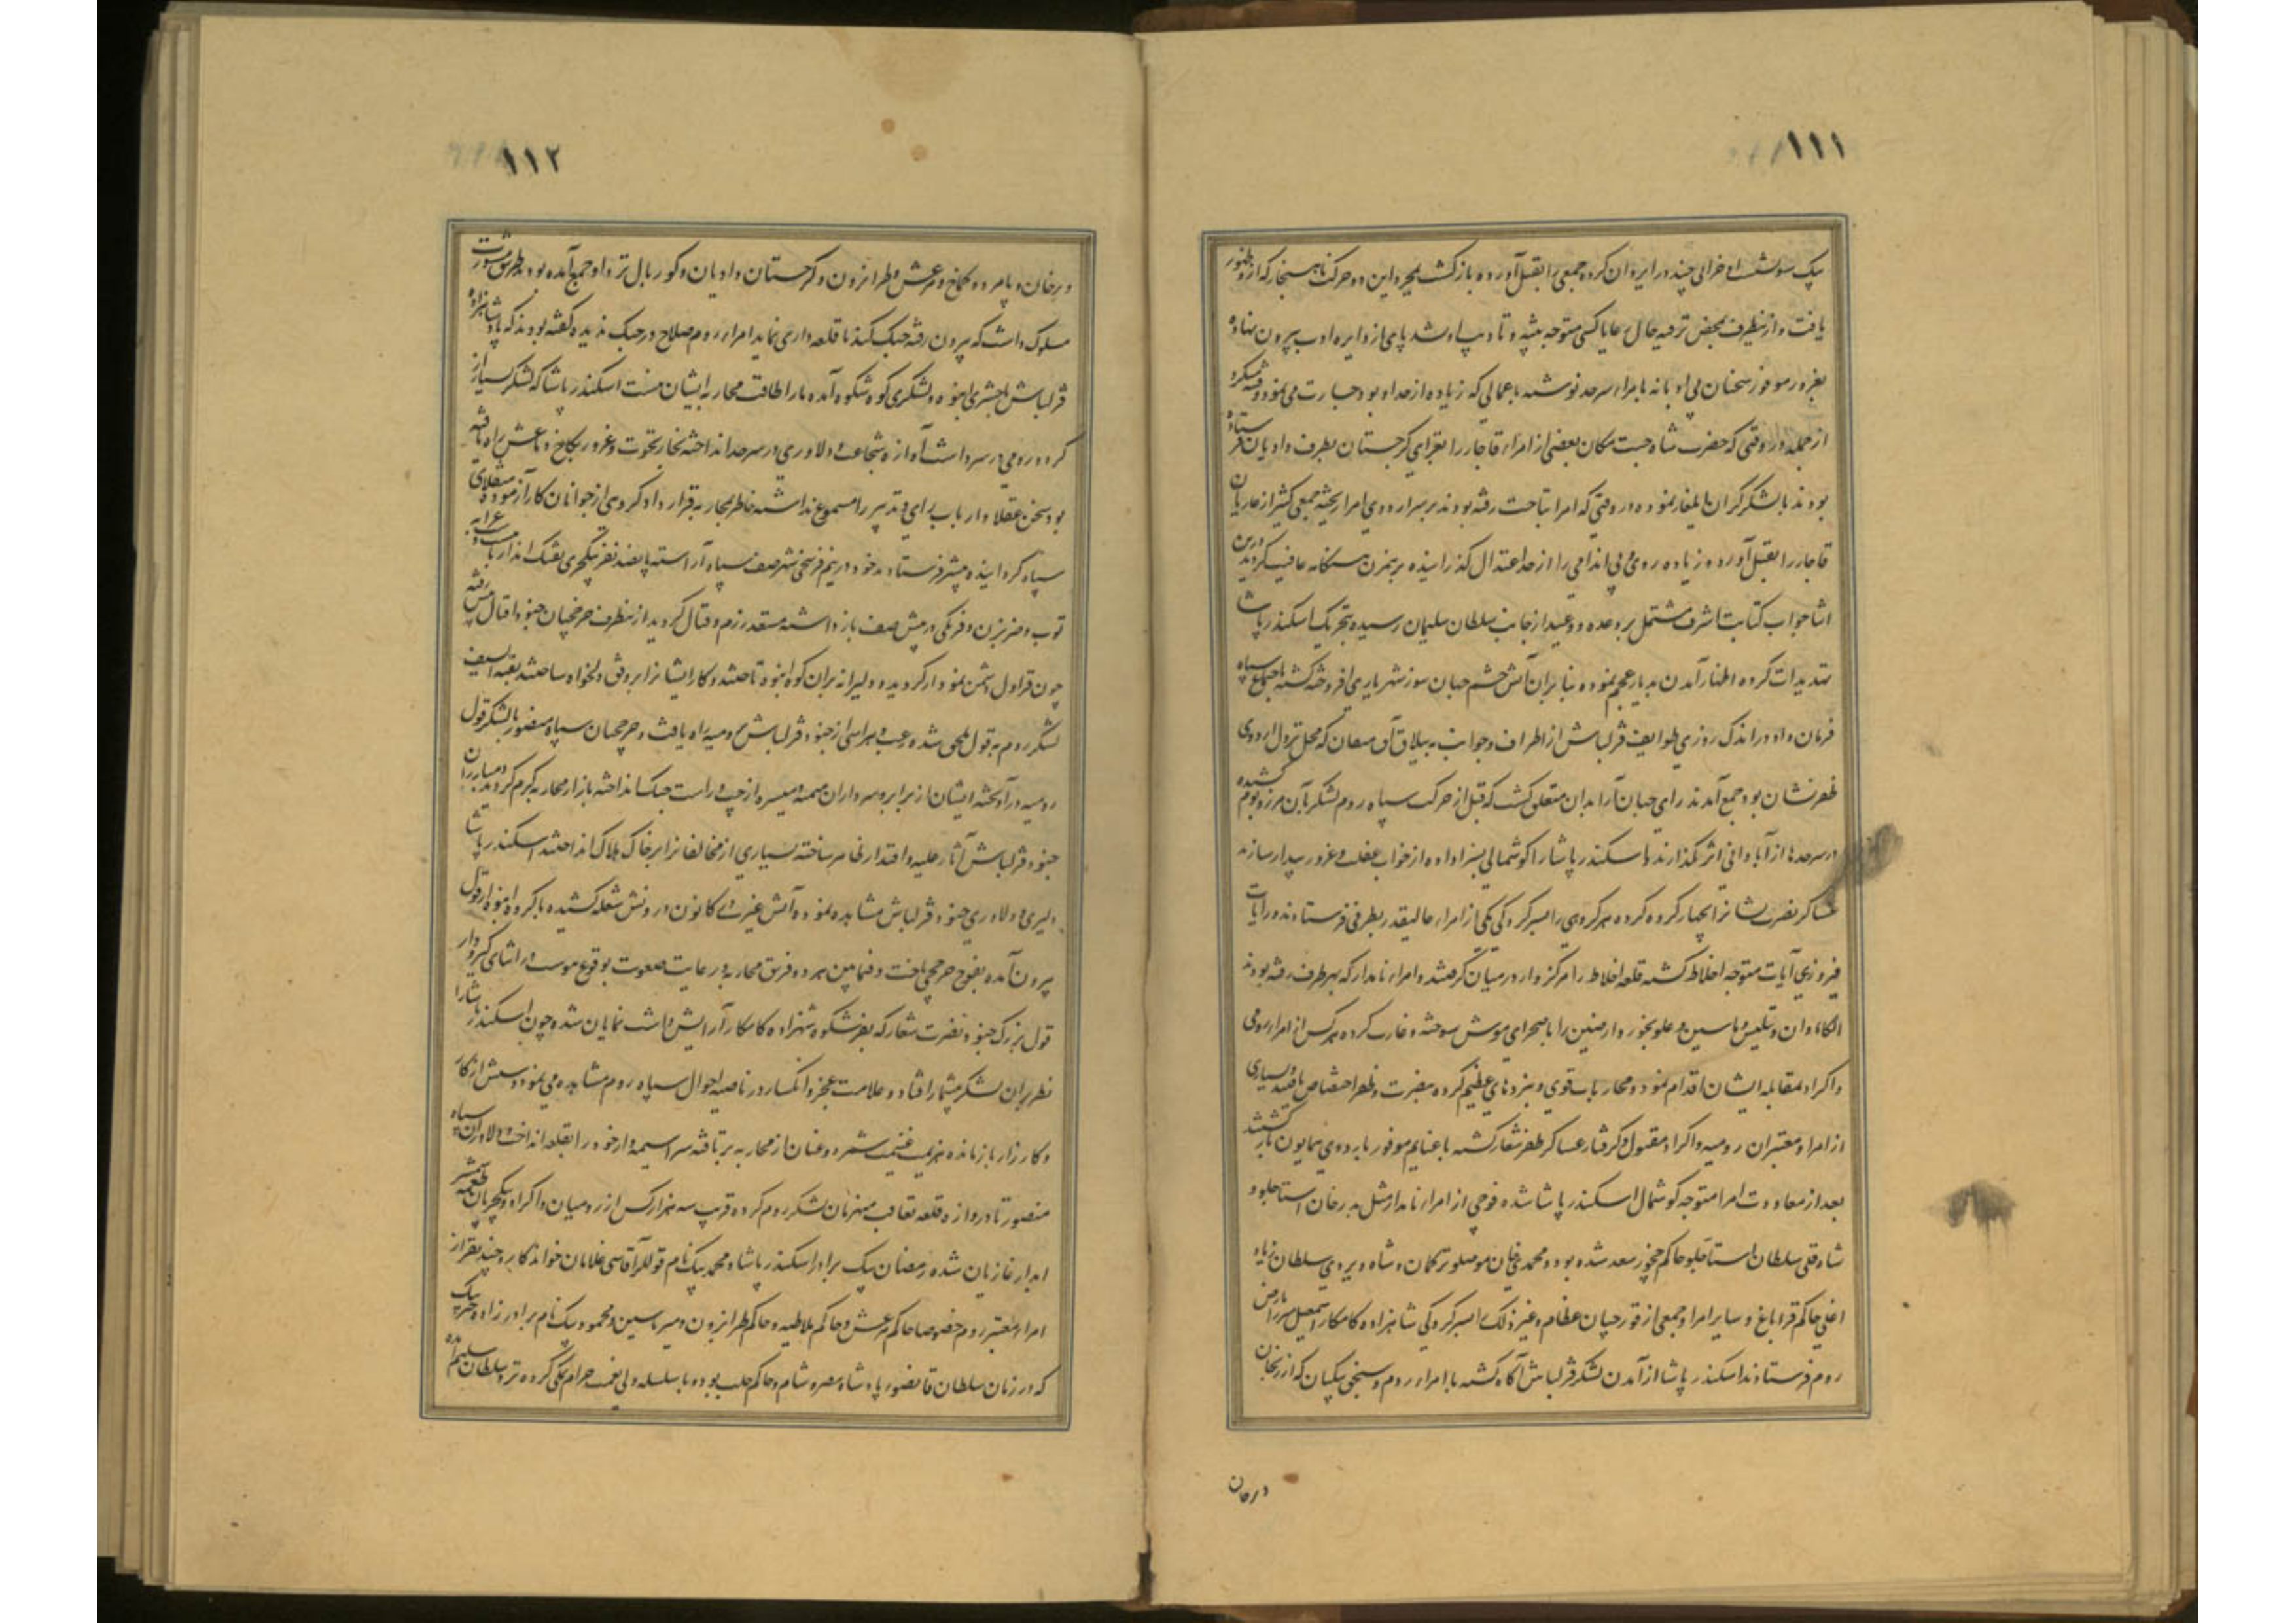 ١١١
بیک سوخت و خرابی چند در ایروان کرده جمعی را بقتل آورده بازگشت مجرد این دو حرکت ناهنجار که ازو ظهور
یافت و ازینطرف بمحض ترفیه حال رعایا کسی متوجه تنبیه و تادیب او نشد پای از دایره ادب بیرون نهاده
بغرور موفور سخنان بی ادبانه بامراء سرحد نوشته باعمالی که زیاده از حد او بود جسارت می نمود
از جمله در وقتی که حضرت شاه جنت مکان بعضی از امراء قاجار را بغزای گرجستان بطرف دادیان فرستاده
بودند با لشکر گران ایلغار نموده در وقتی که امرا بتاخت رفته بودند بر سر اردوی امرا ریخته جمعی کثیر از غازیان
قاجار را بقتل آورد و زیاده روی و بی اندامی را از حد اعتدال گذرانیده برهمزن هنگامه عافیت گردید درین
اثنا جواب کتابت اشرف مشتمل بر وعده و وعید از جانب سلطان سلیمان رسیده بتحریک اسکندر پاشا
تهدیدات کرده اظهار آمدن بدیار عجم نموده بنابران آتش خشم جهان سوز شهریاری افروخته گشته باجتماع سپاه
فرمان داد و در اندک روزی طوایف قزلباش از اطراف و جوانب به ییلاق که محل نزول اردوی
ظفرنشان بود جمع آمدند رای جهان آرا بدان متعلق گشت که قبل از حرکت سپاه روم لشکر بآن مرز و بوم کشیده
در سرحدها از آبادانی اثر نگذارند و اسکندر پاشا را گوشمالی بسزا داده از خواب غفلت و غرور بیدار سازند
عساکر نصرت نشانرا چهار گروه کرده هر گروهی را بسرکردگی یکی از امراء عالیقدر بطرفی فرستادند و رایات
فیروزی آیات متوجه اخلاط گشته قلعه اخلاط را مرکزوار در میان گرفتند و امراء نامدار که بهر طرف رفته بودند
الکاء وان و تفلیس و باسین و علوبخور و ارمنین را با صحرای موش سوخته و غارت کرده هر کس از امراء رومی
و اکراد بمقابله ایشان اقدام نمود و محاربات قوی و نبردهای عظیم کرده بنصرت و ظفر اختصاص یافتند و بسیاری
از امرا و معتبران رومیه و اکراد مقتول و گرفتار عساکر ظفر شعار گشته با غنایم موفور باردوی همایون بازگشتند
بعد از معاودت امرا متوجه گوشمال اسکندر پاشا شده فوجی از امراء نامدار مثل بدرخان استاجلو و
شاه قلی سلطان استاجلو حاکم چخور سعد شده بود و محمدی خان موصلو ترکمان و شاه ویردی سلطان زیاد
اغلی حاکم قراباغ و سایر امرا و جمعی از قورچیان عظام و غیر ذلک بسرکردگی شاهزاده کامکار اسمعیل میرزا بارض
روم فرستادند اسکندر پاشا از آمدن لشکر قزلباش آگاه گشته با امراء روم و سنجق بیکیان که ارزنجان
درجان
١١٢
و برخان و پامرد و کماخ و مرعش و طرابزون و گرجستان و دادیان و کوریال نزد او جمع آمده بود طریق مشورت
مسلوک داشت که بیرون رفته جنگ کند یا قلعه داری نماید امراء روم صلاح در جنگ ندیده گفته بودند که پادشاهزاده
قزلباش با حشری انبوه و لشکری کوه شکوه آمده ما را طاقت محاربه ایشان نیست اسکندر پاشا که لشکر بسیار از
کرد و رومی در سر داشت آوازه شجاعت و دلاوری در سرحد انداخته بخار نخوت و غرور بکاخ دماغش راه یافته
بود سخن عقلا و ارباب رای و تدبیر را مسموع نداشته خاطر بمحاربه قرار داد گروهی از جوانان کارآزموده منقلای
سپاه گردانیده پیشتر فرستاد و خود در نیم فرسخی شهر صف سپاه آراسته پانصد نفر ینگچری تفنک انداز با عرابه
توپ و ضربزن و فرنکی در پیش صف باز داشته مستعد رزم و قتال گردید از ینطرف چرخچیان جنود اقبال پیش رفته
چون قراول دشمن نمودار گردید و دلیرانه بران گروه انبوه تاختند و کار ایشانرا بر وفق دلخواه ساختند بقیة السیف
لشکر روم به قول ملحق شده رعب و هراسی از جنود قزلباش بر رومیه راه یافت و چرخچیان سپاه منصور با لشکر قول
رومیه درآویخته ایشان از برابر و سرداران میمنه و میسره از چپ و راست جنک انداخته بازار محاربه گرم گردید و مبارزان
جنود قزلباش آثار جلیه و اقتدار ظاهر ساخته بسیاری از مخالفانرا بر خاک هلاک انداختند اسکندر پاشا
دلیری و دلاوری جنود قزلباش مشاهده نموده آتش غیرت از کانون درونش شعله کشیده با گروه انبوه از قول
بیرون آمده بفوج چرخچی تاخت و فیمابین هر دو فریق محاربه در غایت صعوبت بوقوع پیوست در اثنای گیرودار
قول بزرگ جنود نصرت شعار که بفر شکوه شهزاده کامکار آرایش داشت نمایان شده چون اسکندر پاشا را
نظر بران لشکر بیشمار افتاد و علامت عجز و انکسار در ناصیه احوال سپاه روم مشاهده می نمود دستش از کار
و کارزار بازمانده هزیمت غنیمت شمرد و عنان از محاربه برتافته سراسیمه وار خود را بقلعه انداخت و دلاوران سپاه
منصور تا دروازه قلعه تعاقب منهزمان لشکر روم کرده قریب سه هزار کس از رومیان و اکراد و ینکچریان طعمه شمشیر
آبدار غازیان شده رمضان بیک برادر اسکندر پاشا و محمد بیک نام قوللرآقاسی غلامان خواندگار و چند نفر از
امراء معتبر روم خصوصا حاکم مرعش و حاکم ملاطیه و حاکم طرابزون و میر باسین و محمود بیک نام برادرزاده خیر بیک
که در زمان سلطان قانصوه پادشاه مصر و شام و حاکم حلب بوده با سلسله ولی نعمت حرام نمکی کرده نزد سلطان سلیم آمده